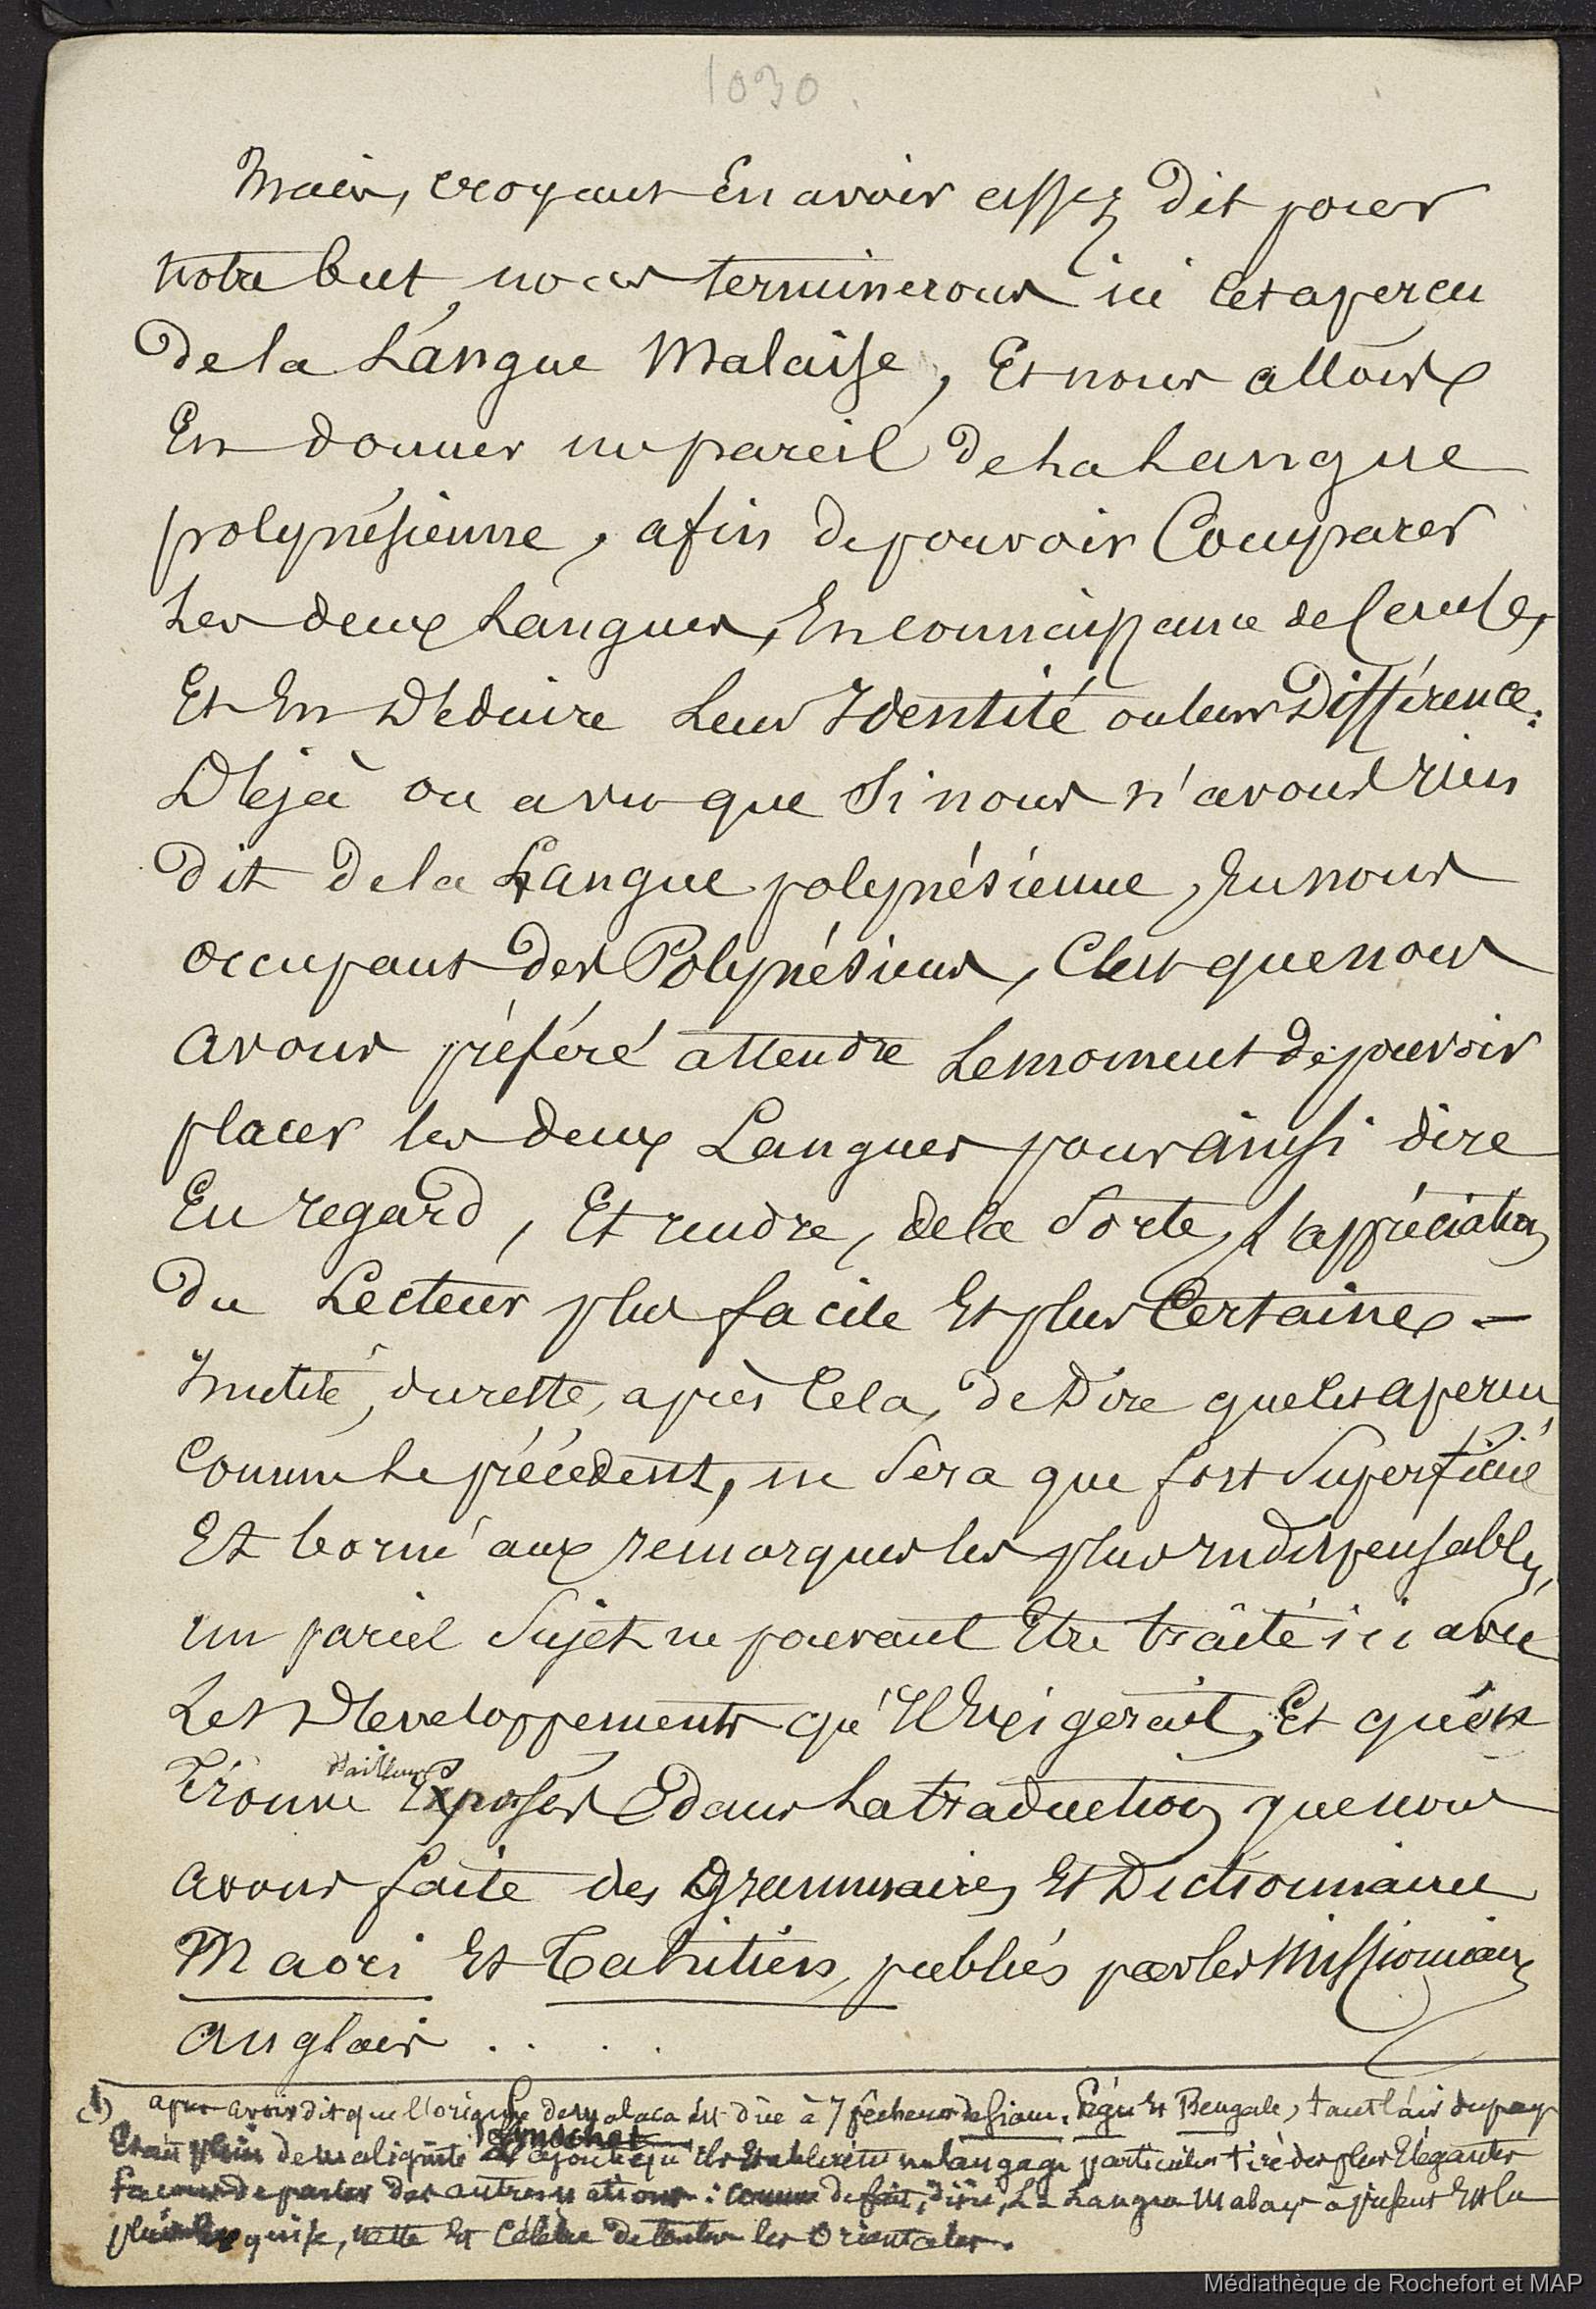 1030.
Mais, croyant En avoir assez Dit pour
notre but, nous terminerons ici Cet apercu
De la Langue Malaise, Et nous allons
En donner un pareil De La Langue
polynésienne, afin de pouvoir Comparer
Les deux Langues, En connaissance de Cause,
Et En Déduire Leur Identité ou leur Différence.
Déjà on a vu que Si nous n'avons rien
Dit De la Langue polynésienne, En nous
occupant Des Polynésiens, C'est que nous
avons préféré attendre Le moment de pouvoir
placer les deux Langues pour ainsi dire
En regard, Et rendre, de la Sorte, L'appréciation
Du Lecteur plus facile Et plus Certaine. —
Inutile, du reste, après Cela, De Dire que Cet apercu
Comme Le précédent, ne Sera que fort Superficiel
Et borné aux remarques les plus indispensables,
un pareil Sujet ne pouvant Etre traité ici avec
Les Développements qu'Il Exigerait, Et qu'on
Trouve d'ailleurs Exposés dans La traduction que nous
avons faite des Grammaires Et Dictionnaires
Maori Et Tahitien, publiés par les Missionnaires
anglais . . . .
(1) après avoir dit que l'origine de Malaca Est dûe à 7 pêcheurs de Siam, Pégu Et Bengale, tant l'air du pays
Etait plein de malignité Linschot ajoute qu'ils Etablirent un langage particulier tiré des plus Elégantes
facons de parler des autres nations : de fait, dit il, La Langue Malaye à présent Est la
plus Exquise, nette Et Célèbre de toutes les Orientales.
Médiathèque de Rochefort et MAP